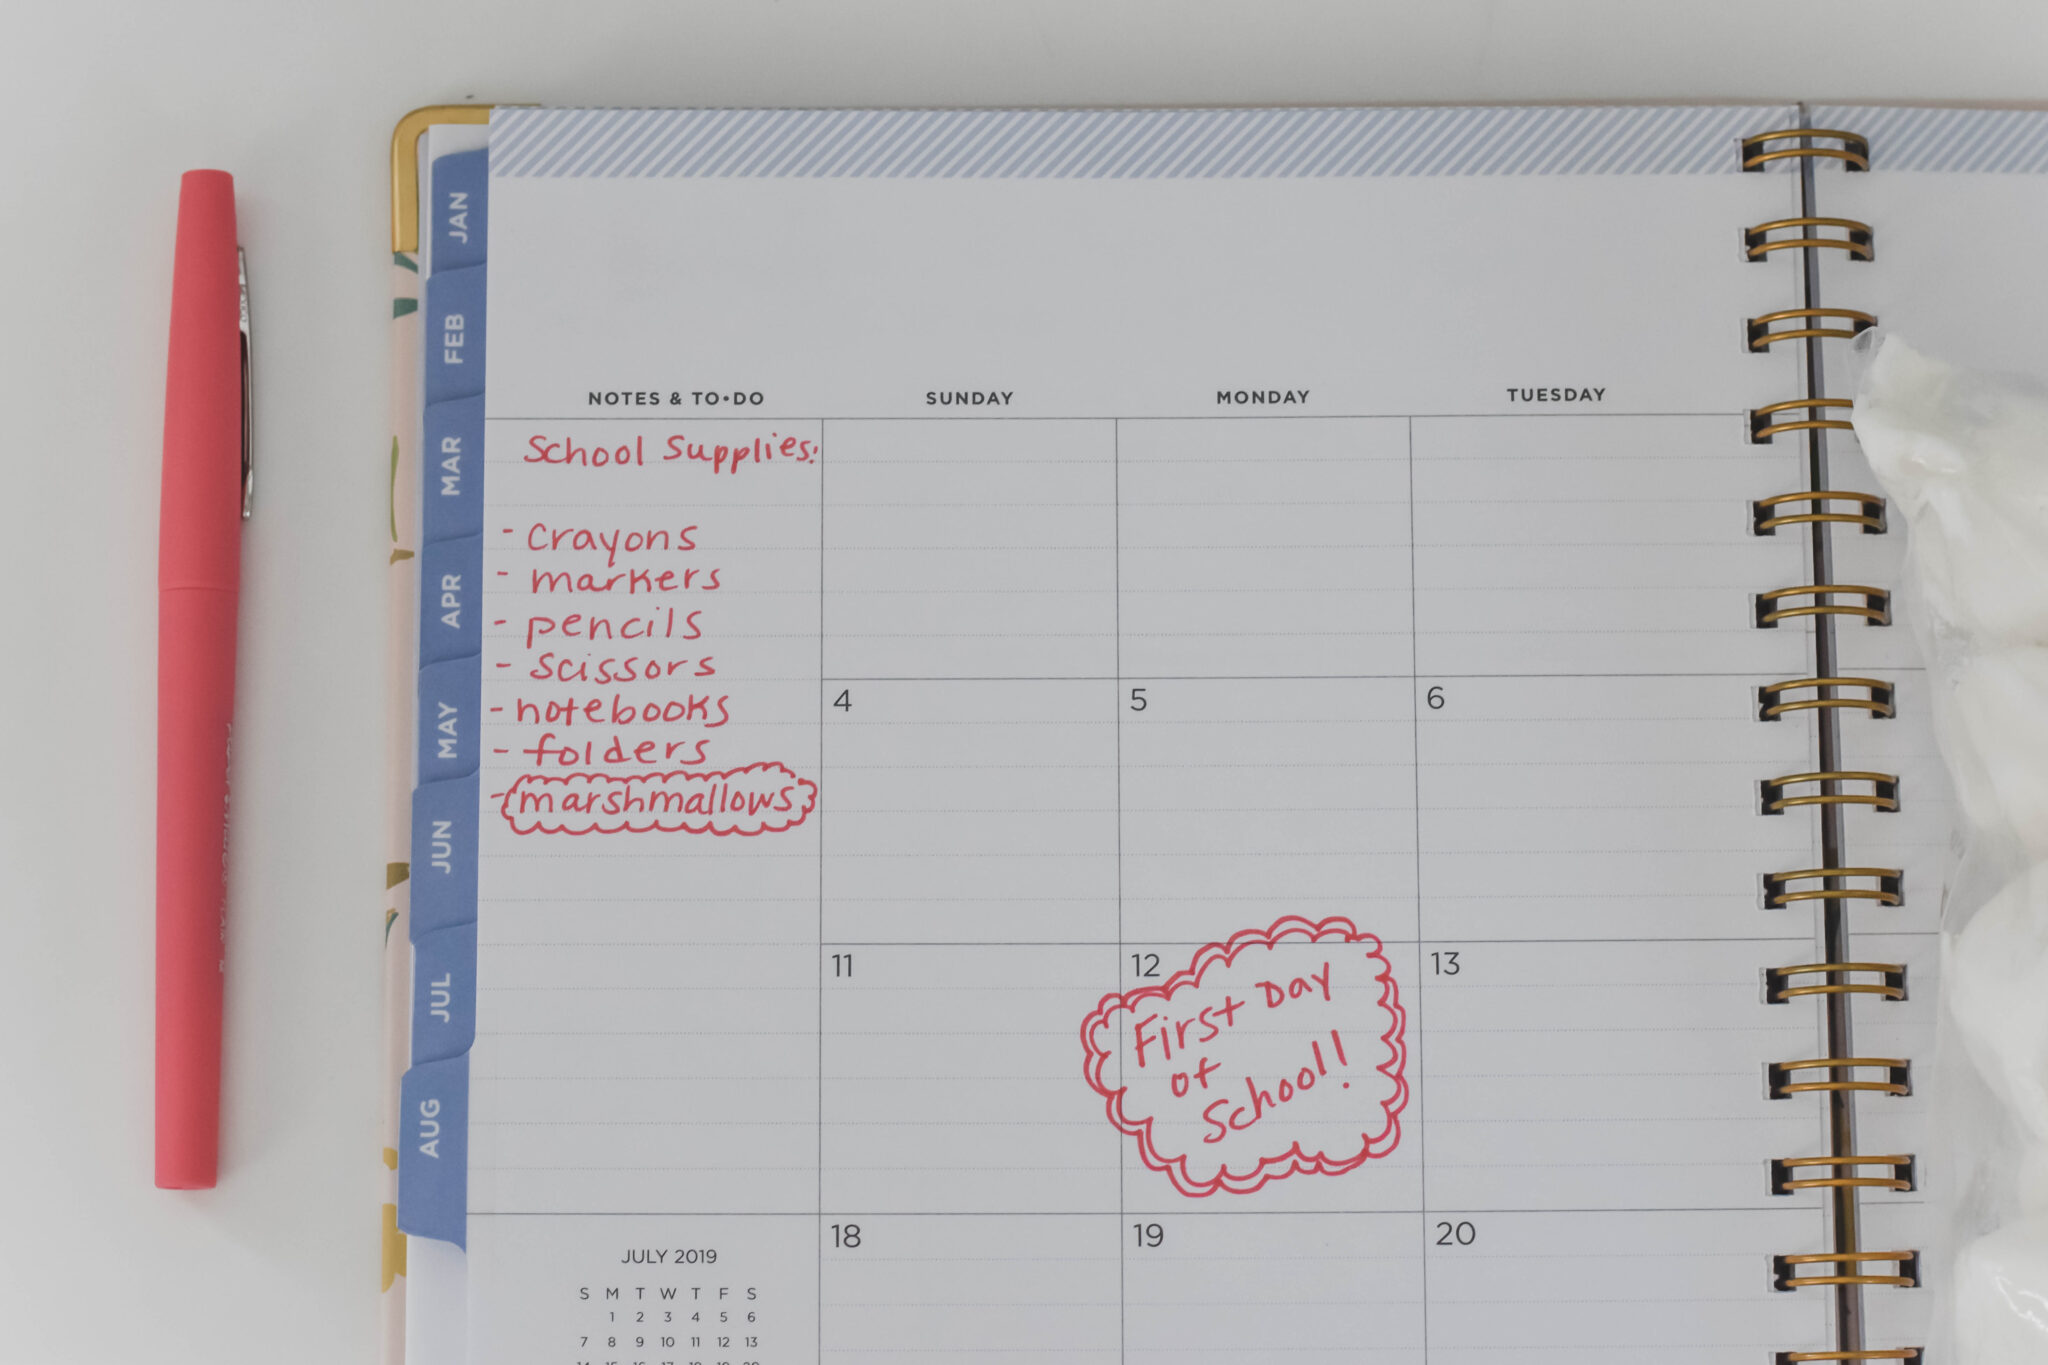 JAN
FEB
MAR
APR
MAY
JUN
JUL
AUG
NOTES & TO•DO
SUNDAY
MONDAY
TUESDAY
School Supplies:
- crayons
- markers
- pencils
- scissors
- notebooks
- folders
- marshmallows
4
5
6
11
12
13
First Day
of
School!
18
19
20
JULY 2019
S M T W T F S
1 2 3 4 5 6
7 8 9 10 11 12 13